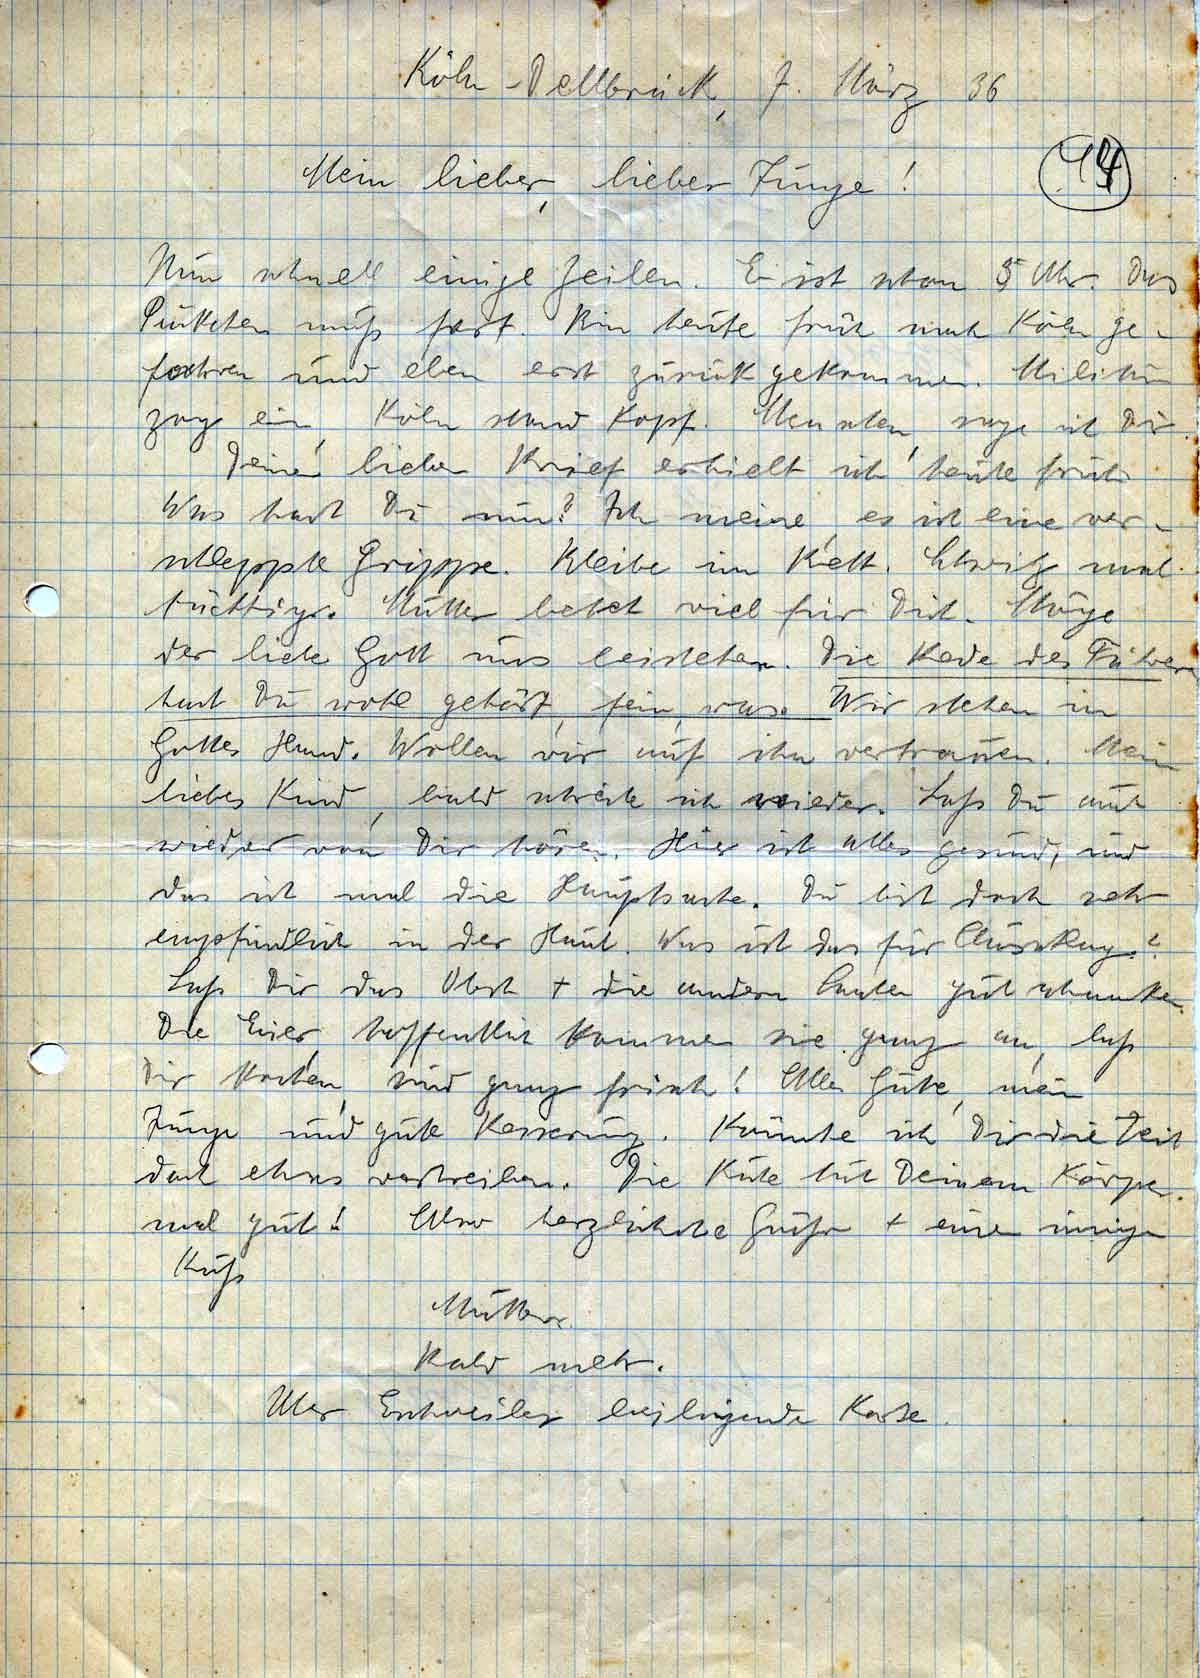 Köln-Dellbrück, 7. März 36
14
Mein lieber, lieber Junge!
Nun schnell einige Zeilen. Es ist schon 5 Uhr. Das
Päckchen muß fort. Bin heute früh nach Köln ge-
fahren und eben erst zurückgekommen. Militär
zog ein, Köln stand Kopf. Menschen, sage ich Dir.
Deinen lieben Brief erhielt ich heute früh.
Was hast Du nun? Ich meine, es ist eine ver-
schleppte Grippe. Bleibe im Bett. Schwitz mal
tüchtig. Mutter betet viel für Dich. Möge
der liebe Gott uns beistehen. Die Rede des Führers
hast Du wohl gehört, fein, was. Wir stehen in
Gottes Hand. Wollen wir auf ihn vertrauen. Mein
liebes Kind, bald schreibe ich wieder. Laß Du auch
wieder von Dir hören. Hier ist alles gesund, und
das ist mal die Hauptsache. Du bist doch sehr
empfindlich in der Haut. Was ist das für Ausschlag?
Laß Dir das Obst + die andern Sachen gut schmecken.
Die Eier, hoffentlich kommen sie ganz an, laß
Dir kochen, sind ganz frisch! Alles Gute, mein
Junge und gute Besserung. Könnte ich Dir die Zeit
doch etwas vertreiben. Die Ruhe tut Deinem Körper
mal gut! Also herzlichste Grüße + einen innigen
Kuß
Mutter.
Bald mehr.
Über Eschweiler beiliegende Karte.